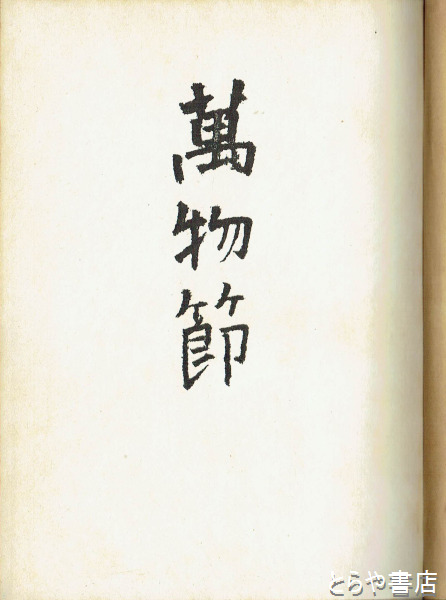 萬物節
とらや書店